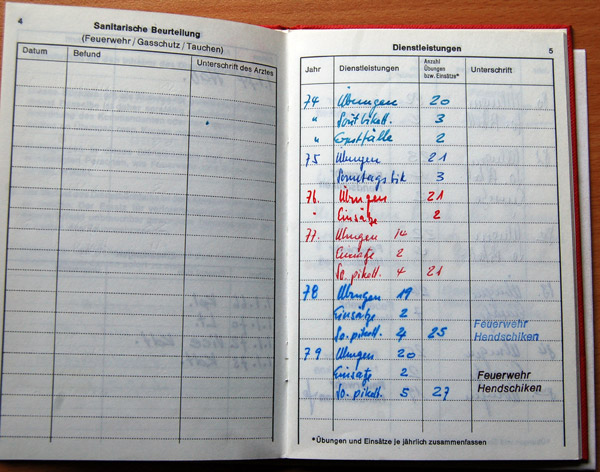 4
Sanitarische Beurteilung
(Feuerwehr / Gasschutz / Tauchen)
Datum Befund Unterschrift des Arztes
Dienstleistungen 5
Jahr Dienstleistungen Anzahl Übungen bzw. Einsätze* Unterschrift
74 Übungen 20
" 3
" Ernstfälle 2
75 Übungen 21
Sonntags 3
76. Übungen 21
" Einsätze 2
77. Übungen 14
Einsätze 2
So. pikett. 4 21
78 Übungen 19
Einsätze 2
So. pikett. 4 25
Feuerwehr
Hendschiken
79 Übungen 20
Einsätze 2
So. pikett. 5 27
Feuerwehr
Hendschiken
*Übungen und Einsätze je jährlich zusammenfassen